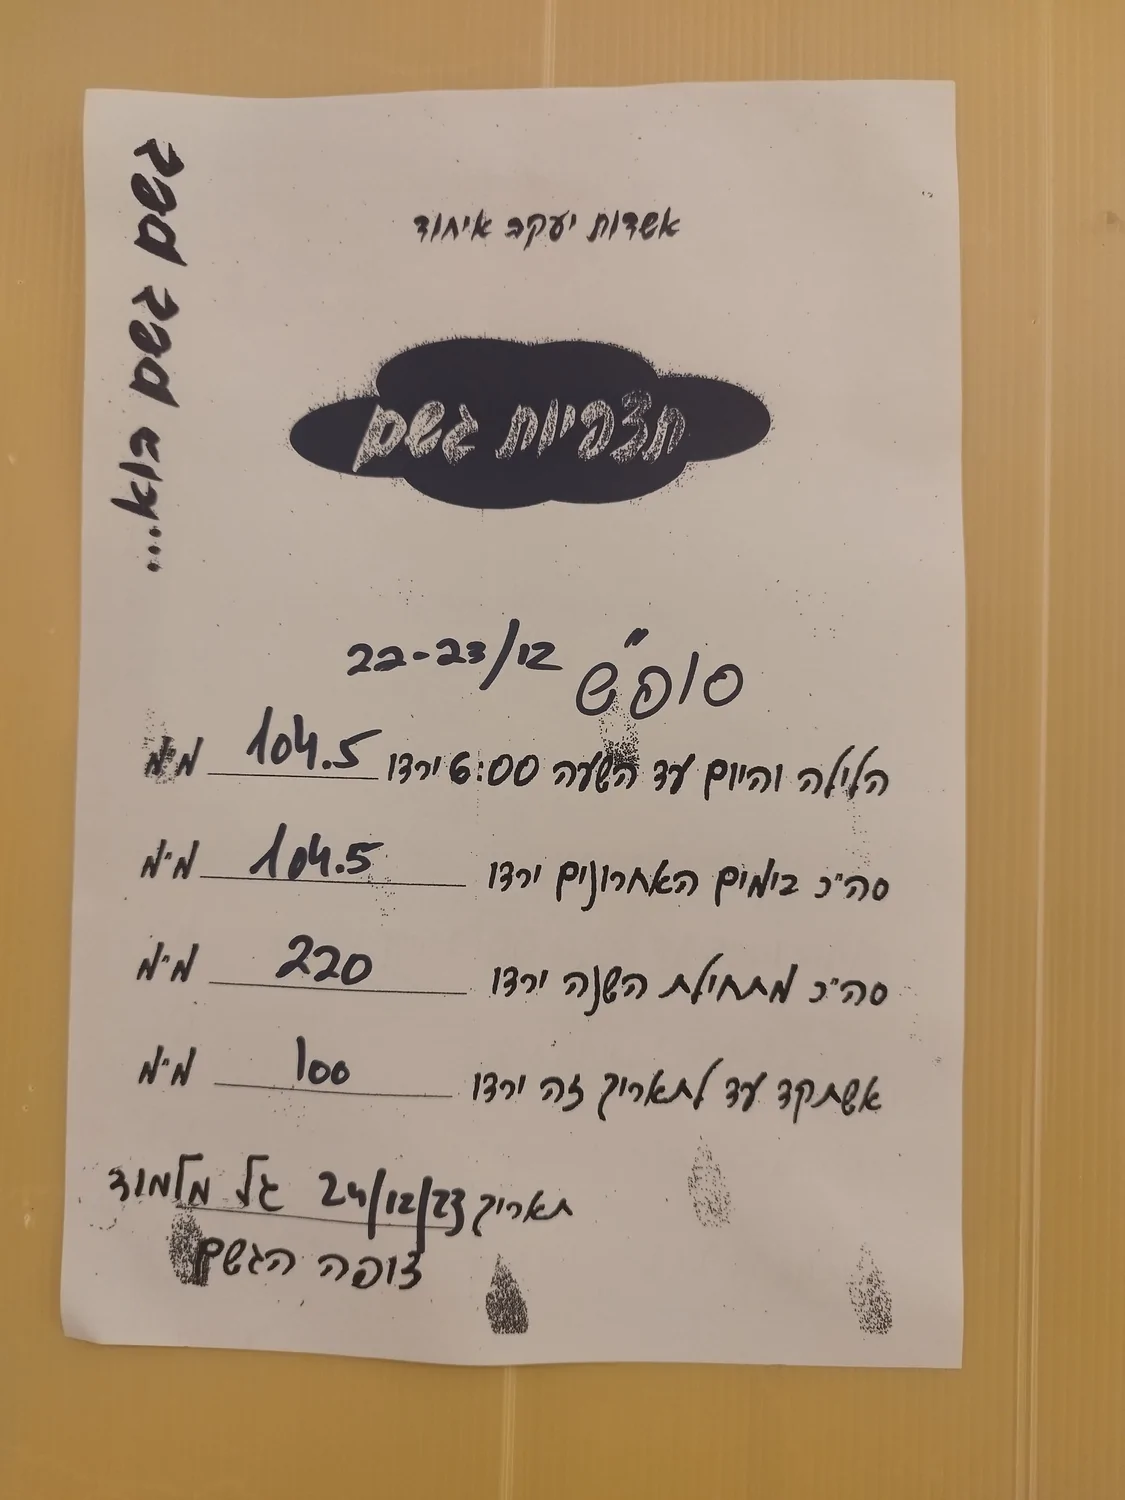 אשדות יעקב איחוד
גשם גשם בוא...
תצפיות גשם
סופ"ש 22-23/12
הלילה והיום עד השעה 6:00 ירדו 104.5 מ"מ
סה"כ בימים האחרונים ירדו 104.5 מ"מ
סה"כ מתחילת השנה ירדו 220 מ"מ
אשתקד עד לתאריך זה ירדו 100 מ"מ
תאריך 24/12/23 גל מלמוד
צופה הגשם